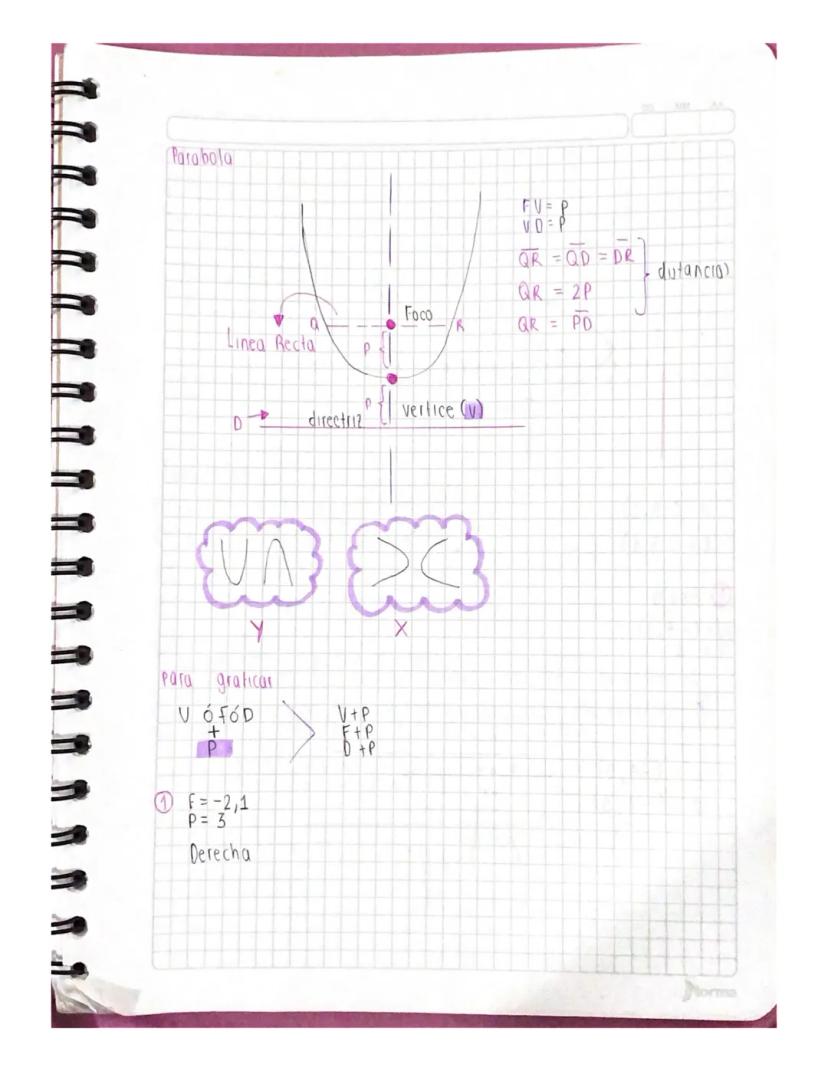 Parabola
FV = P
VD = P
QR = QD = DR
distancias
QR = 2P
QR = PD
Foco
Q
R
Linea Recta
P
P
vertice (v)
D
directriz
Y
X
para graficar
V ó F ó D
+
P
V+P
F+P
D+P
1 F = -2,1
P = 3
Derecha
Norma